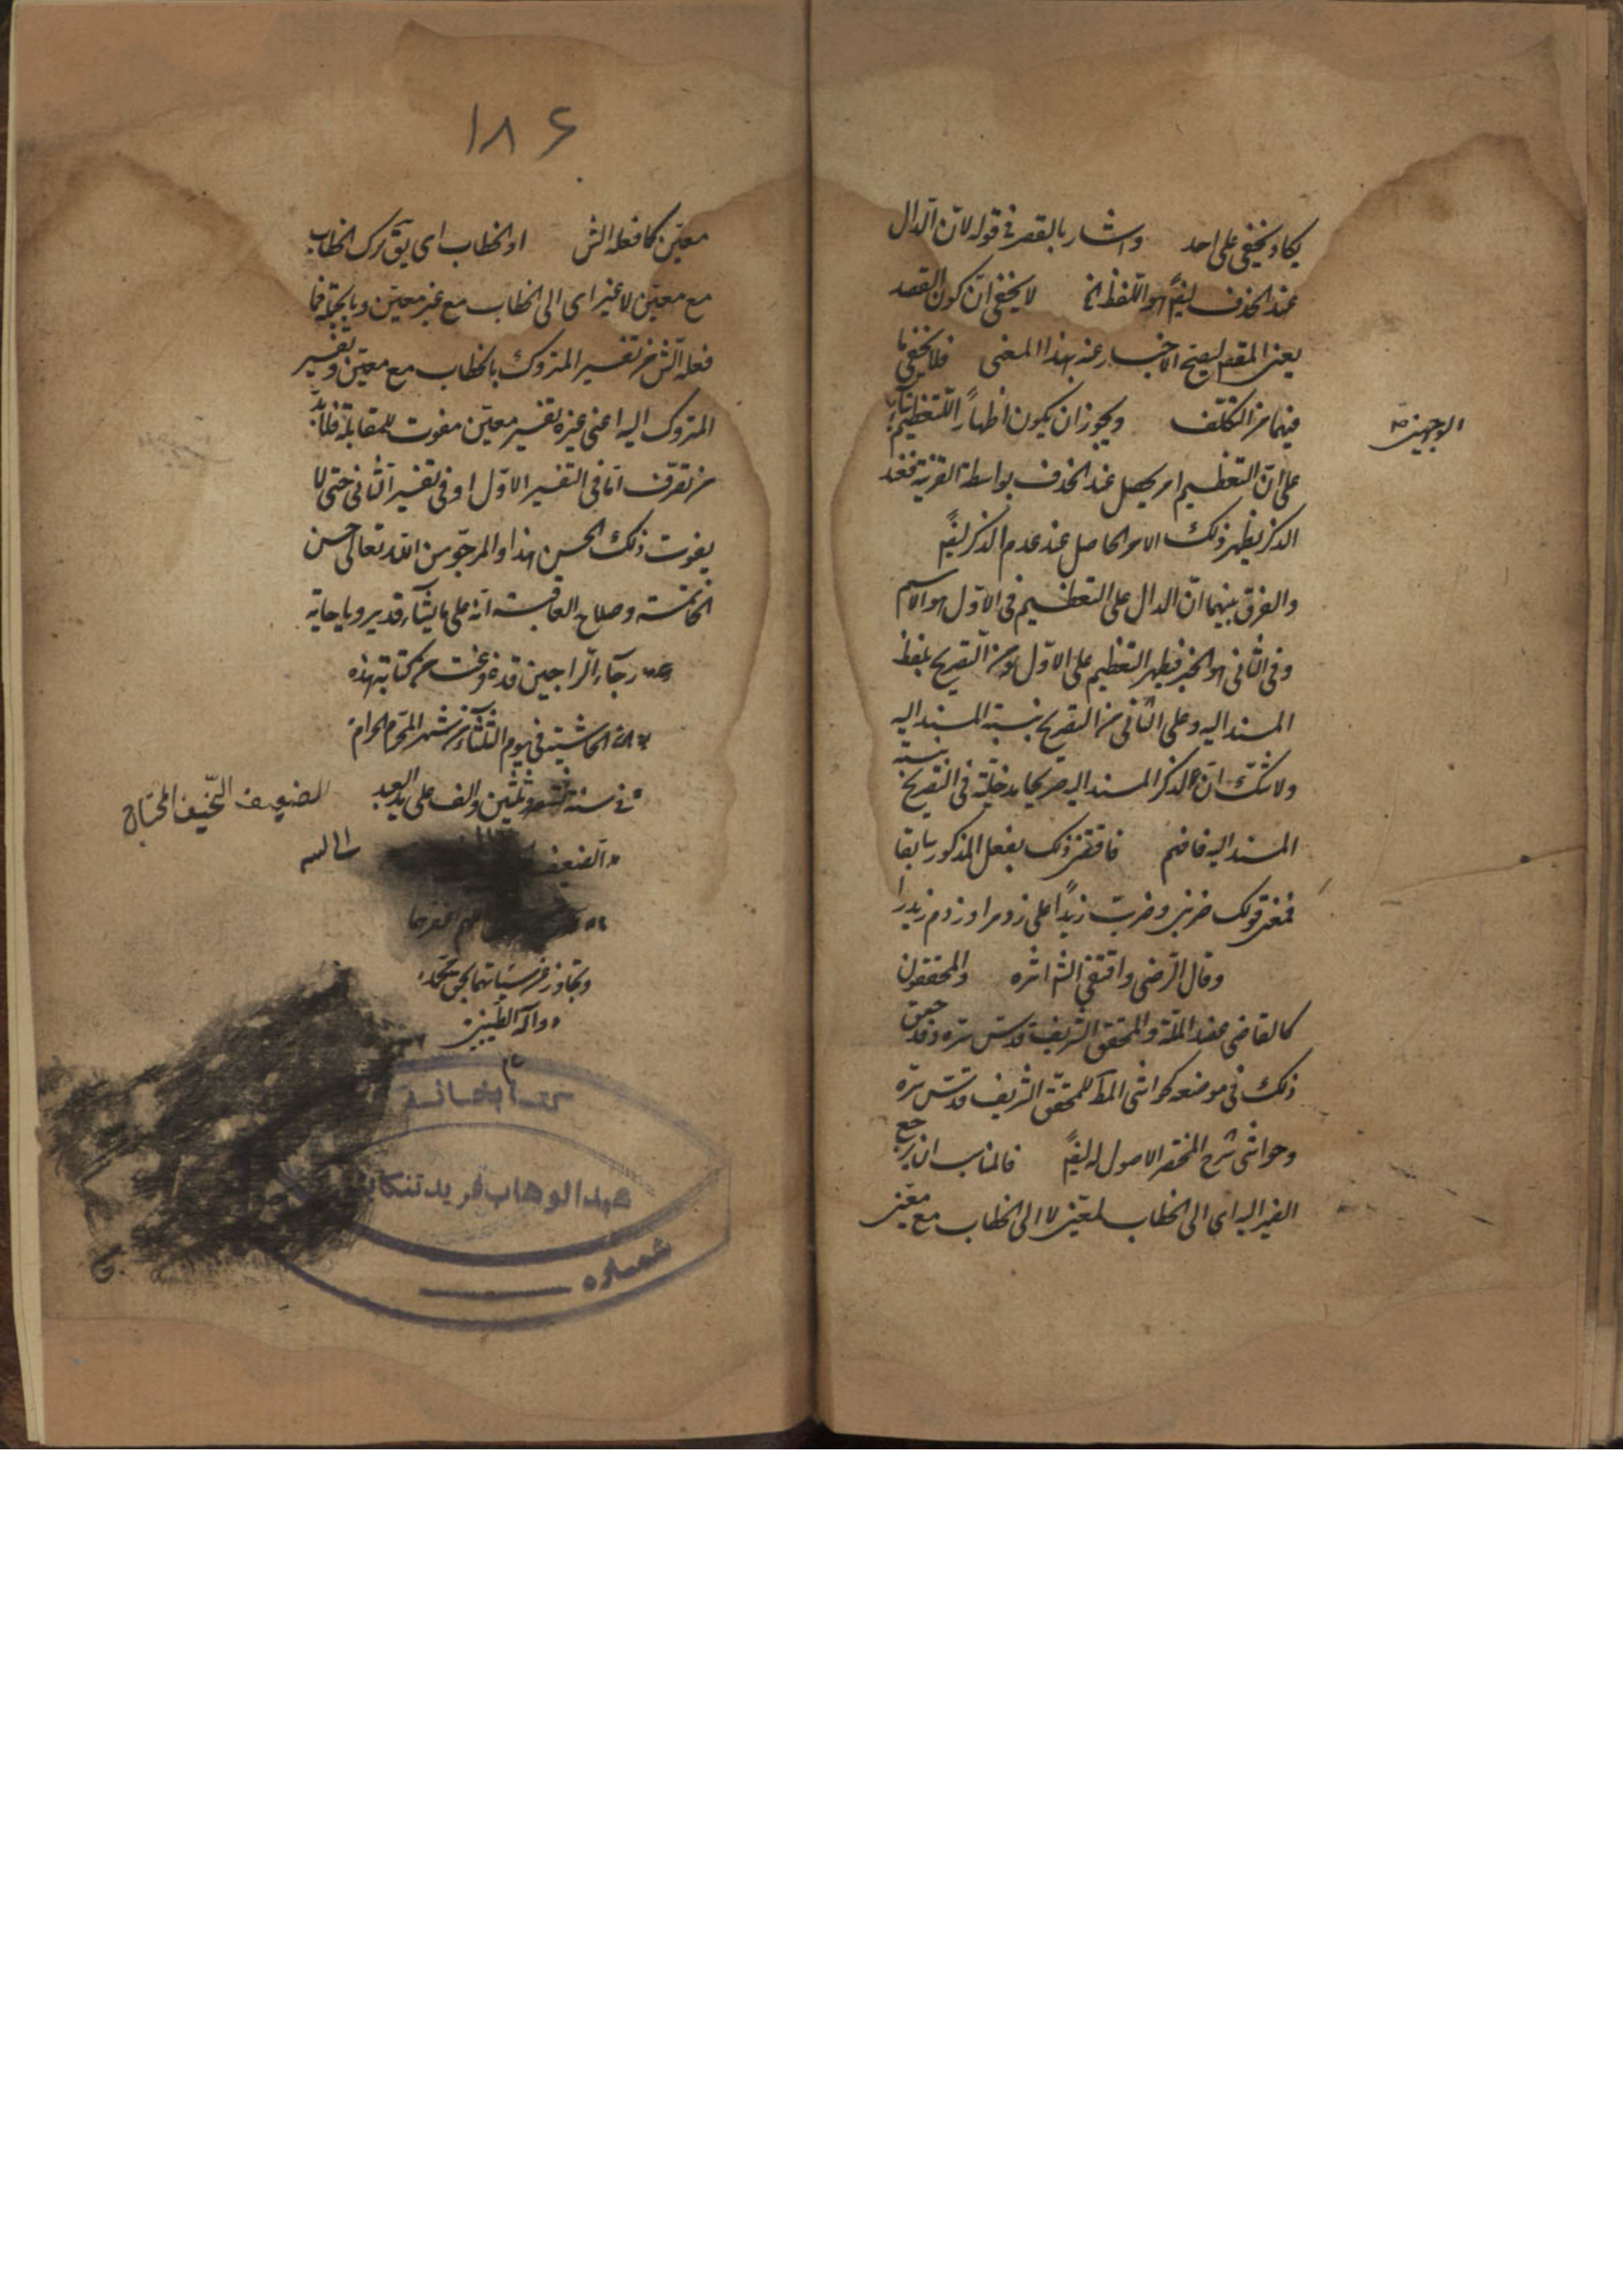 يكاد يخفى على احد واشار بالقصر في قوله لانّ الدال
عند الحذف ايضً هو اللفظ الخ لا يخفى انّ كون القصد
بعنى المقصد ليصحّ الاخبار عنه بهذا المعنى فلا يخفى ما
فيهما من التكلّف ويجوز ان يكون اظهاراً للتعظيم بناء
الوجهين
على انّ التعظيم امر يحصل عند الحذف بواسطة القرينة فعند
الذكر يظهر ذلك الامر الحاصل عند عدم الذكر ايضً
والفرق بينهما انّ الدال على التعظيم في الاوّل هو الاسم
وفي الثاني هو الخبر فيظهر التعظيم على الاوّل من التصريح بلفظ
المسند اليه وعلى الثاني من التصريح بنسبة المسند اليه
ولا شكّ انّ لذكر المسند اليه صريحا مدخليّة في التصريح بنسبة
المسند اليه فافهم فاقتضى ذلك بفعل المذكور سابقا
فمعنى قولك ضربنى وضربت زيدًا على زد مرا وزدم زيد را
وقال الرّضى واقتفى الش اثره والمحققون
كالقاضى عضد الملّة والمحقق الشريف قدس سرّه وقد حقق
ذلك في موضعه كحواشى المط للمحقق الشريف قدّس سرّه
وحواشى شرح المختصر الاصول له ايضً فالمناسب ان يرجع
الضمير اليه اى الى الخطاب لمعيّن لا الى الخطاب مع معيّن
١٨۶
معيّن كما فعله الش او الخطاب اى يق ترك الخطاب
مع معيّن لا غير اى الى الخطاب مع غير معيّن وبالجملة فما
فعله الش من تفسير المتروك بالخطاب مع معيّن وتفسير
المتروك اليه اعنى غيره بغير معيّن مفوت للمقابلة فلا بدّ
من تصرّف امّا في التفسير الاوّل او في تفسير الثانى حتى لا
يفوت ذلك الحسن هذا والمرجوّ من اللّه تعالى حسن
الخاتمة وصلاح العاقبة انّه على ما يشاء قدير وباجابة
رجاء الراجين قد فرغت من كتابة هذه
الحاشية في يوم الثلثاء من شهر المحرّم الحرام
في سنة وثلثين والف على يد العبد
الضعيف النحيف المحتاج
الى الله
الضعيف
غفر لهما
وتجاوز عن سيّئاتهما بحق محمّد
وآله الطيّبين
تم
كتابخانه
عبدالوهاب فريد تنكابنى
شماره